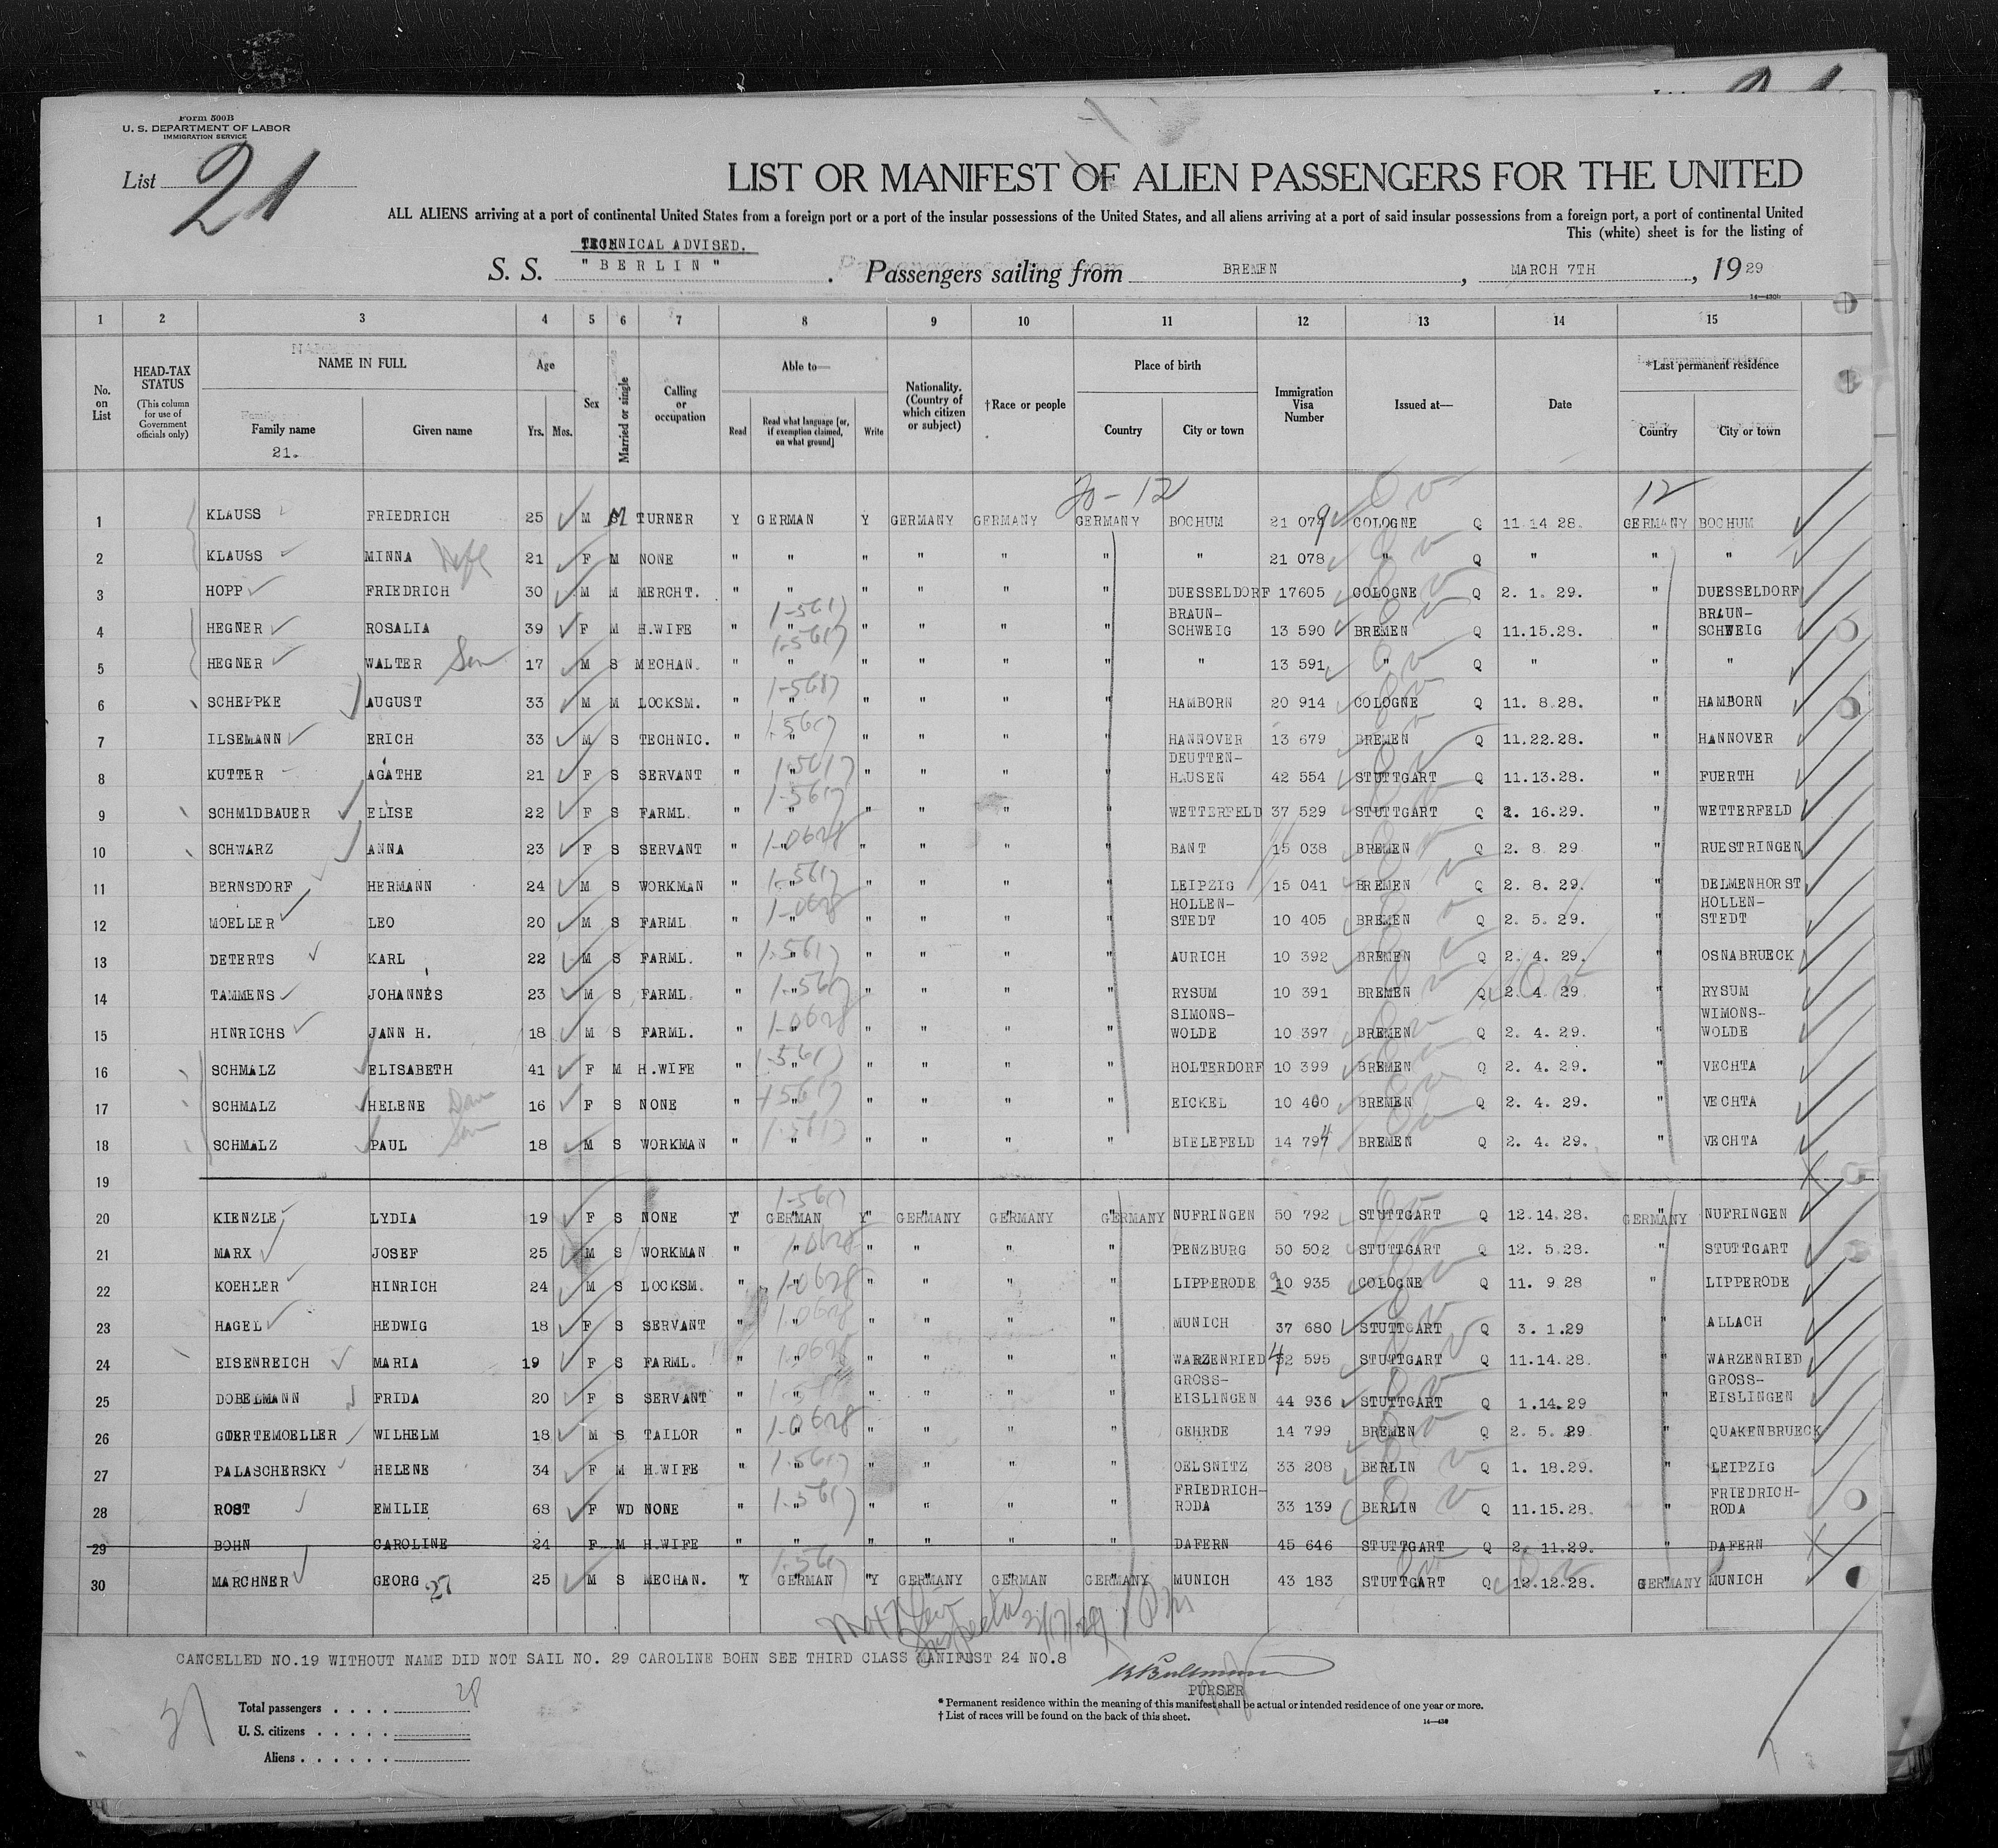 Form 500B
U. S. DEPARTMENT OF LABOR
IMMIGRATION SERVICE
List 21
LIST OR MANIFEST OF ALIEN PASSENGERS FOR THE UNITED
ALL ALIENS arriving at a port of continental United States from a foreign port or a port of the insular possessions of the United States, and all aliens arriving at a port of said insular possessions from a foreign port, a port of continental United
This (white) sheet is for the listing of
TECHNICAL ADVISED.
S. S. "BERLIN" Passengers sailing from BREMEN, MARCH 7TH, 1929
14—430b
1 2 3 4 5 6 7 8 9 10 11 12 13 14 15
No. on List
HEAD-TAX STATUS
(This column for use of Government officials only)
NAME IN FULL
Family name
21.
Given name
Age
Yrs. Mos.
Sex
Married or single
Calling or occupation
Able to—
Read
Read what language [or, if exemption claimed, on what ground]
Write
Nationality. (Country of which citizen or subject)
†Race or people
Place of birth
Country
City or town
Immigration Visa Number
Issued at—
Date
*Last permanent residence
Country
City or town
20-12 12
1 KLAUSS FRIEDRICH 25 M M TURNER Y GERMAN Y GERMANY GERMANY GERMANY BOCHUM 21 079 COLOGNE Q 11.14 28. GERMANY BOCHUM
2 KLAUSS MINNA Wife 21 F M NONE " " " " " " " 21 078 " Q " " "
3 HOPP FRIEDRICH 30 M M MERCHT. " " " " " " DUESSELDORF 17605 COLOGNE Q 2. 1. 29. " DUESSELDORF
4 HEGNER ROSALIA 39 F M H.WIFE " 1-5617 " " " " " BRAUN-SCHWEIG 13 590 BREMEN Q 11.15.28. " BRAUN-SCHWEIG
5 HEGNER WALTER Son 17 M S MECHAN. " 1-5617 " " " " " " 13 591 " Q " " "
6 SCHEPPKE AUGUST 33 M M LOCKSM. " 1-5617 " " " " " HAMBORN 20 914 COLOGNE Q 11. 8.28. " HAMBORN
7 ILSEMANN ERICH 33 M S TECHNIC. " 1-5617 " " " " " HANNOVER 13 679 BREMEN Q 11.22.28. " HANNOVER
8 KUTTER AGATHE 21 F S SERVANT " 1-5617 " " " " " DEUTTEN-HAUSEN 42 554 STUTTGART Q 11.13.28. " FUERTH
9 SCHMIDBAUER ELISE 22 F S FARML. " 1-5617 " " " " " WETTERFELD 37 529 STUTTGART Q 2. 16.29. " WETTERFELD
10 SCHWARZ ANNA 23 F S SERVANT " 1-0628 " " " " " BANT 15 038 BREMEN Q 2. 8 29 " RUESTRINGEN
11 BERNSDORF HERMANN 24 M S WORKMAN " 1-5617 " " " " " LEIPZIG 15 041 BREMEN Q 2. 8. 29. " DELMENHORST
12 MOELLER LEO 20 M S FARML " 1-0628 " " " " " HOLLEN-STEDT 10 405 BREMEN Q 2. 5. 29. " HOLLEN-STEDT
13 DETERTS KARL 22 M S FARML. " 1-5617 " " " " " AURICH 10 392 BREMEN Q 2. 4. 29. " OSNABRUECK
14 TAMMENS JOHANNES 23 M S FARML. " 1-5617 " " " " " RYSUM 10 391 BREMEN Q 2. 4 29 " RYSUM
15 HINRICHS JANN H. 18 M S FARML. " 1-0628 " " " " " SIMONS-WOLDE 10 397 BREMEN Q 2. 4. 29. " WIMONS-WOLDE
16 SCHMALZ ELISABETH 41 F M H.WIFE " 1-5617 " " " " " HOLTERDORF 10 399 BREMEN Q 2. 4. 29. " VECHTA
17 SCHMALZ HELENE Dau 16 F S NONE " 1-5617 " " " " " EICKEL 10 400 BREMEN Q 2. 4. 29. " VECHTA
18 SCHMALZ PAUL Son 18 M S WORKMAN " 1-5617 " " " " " BIELEFELD 14 794 BREMEN Q 2. 4. 29. " VECHTA
19
20 KIENZLE LYDIA 19 F S NONE Y 1-5617 GERMAN Y GERMANY GERMANY GERMANY NUFRINGEN 50 792 STUTTGART Q 12.14.28. GERMANY NUFRINGEN
21 MARX JOSEF 25 M S WORKMAN " 1-0628 " " " " " PENZBURG 50 502 STUTTGART Q 12. 5.28. " STUTTGART
22 KOEHLER HINRICH 24 M S LOCKSM. " 1-0628 " " " " " LIPPERODE 20 935 COLOGNE Q 11. 9 28 " LIPPERODE
23 HAGEL HEDWIG 18 F S SERVANT " 1-0628 " " " " " MUNICH 37 680 STUTTGART Q 3. 1.29 " ALLACH
24 EISENREICH MARIA 19 F S FARML. " 1-0628 " " " " " WARZENRIED 42 595 STUTTGART Q 11.14.28. " WARZENRIED
25 DOBELMANN FRIDA 20 F S SERVANT " " " " " " GROSS-EISLINGEN 44 936 STUTTGART Q 1.14.29 " GROSS-EISLINGEN
26 GOERTEMOELLER WILHELM 18 M S TAILOR " 1-0628 " " " " " GEHRDE 14 799 BREMEN Q 2. 5. 29 " QUAKENBRUECK
27 PALASCHERSKY HELENE 34 F M H.WIFE " 1-5617 " " " " " OELSNITZ 33 208 BERLIN Q 1. 18.29. " LEIPZIG
28 ROST EMILIE 68 F WD NONE " 1-5617 " " " " " FRIEDRICH-RODA 33 139 BERLIN Q 11.15.28. " FRIEDRICH-RODA
29 BOHN CAROLINE 24 F M H.WIFE " " " " " " DAFERN 45 646 STUTTGART Q 2. 11.29. " DAFERN
30 MARCHNER GEORG 27 25 M S MECHAN. "Y 1-5617 GERMAN "Y GERMANY GERMAN GERMANY MUNICH 43 183 STUTTGART Q 12.12.28. GERMANY MUNICH
Inspector 3/17/29
CANCELLED NO.19 WITHOUT NAME DID NOT SAIL NO. 29 CAROLINE BOHN SEE THIRD CLASS MANIFEST 24 NO.8
PURSER
Total passengers . . . . 28
U. S. citizens . . . . .
Aliens . . . . . .
* Permanent residence within the meaning of this manifest shall be actual or intended residence of one year or more.
† List of races will be found on the back of this sheet.
14—430